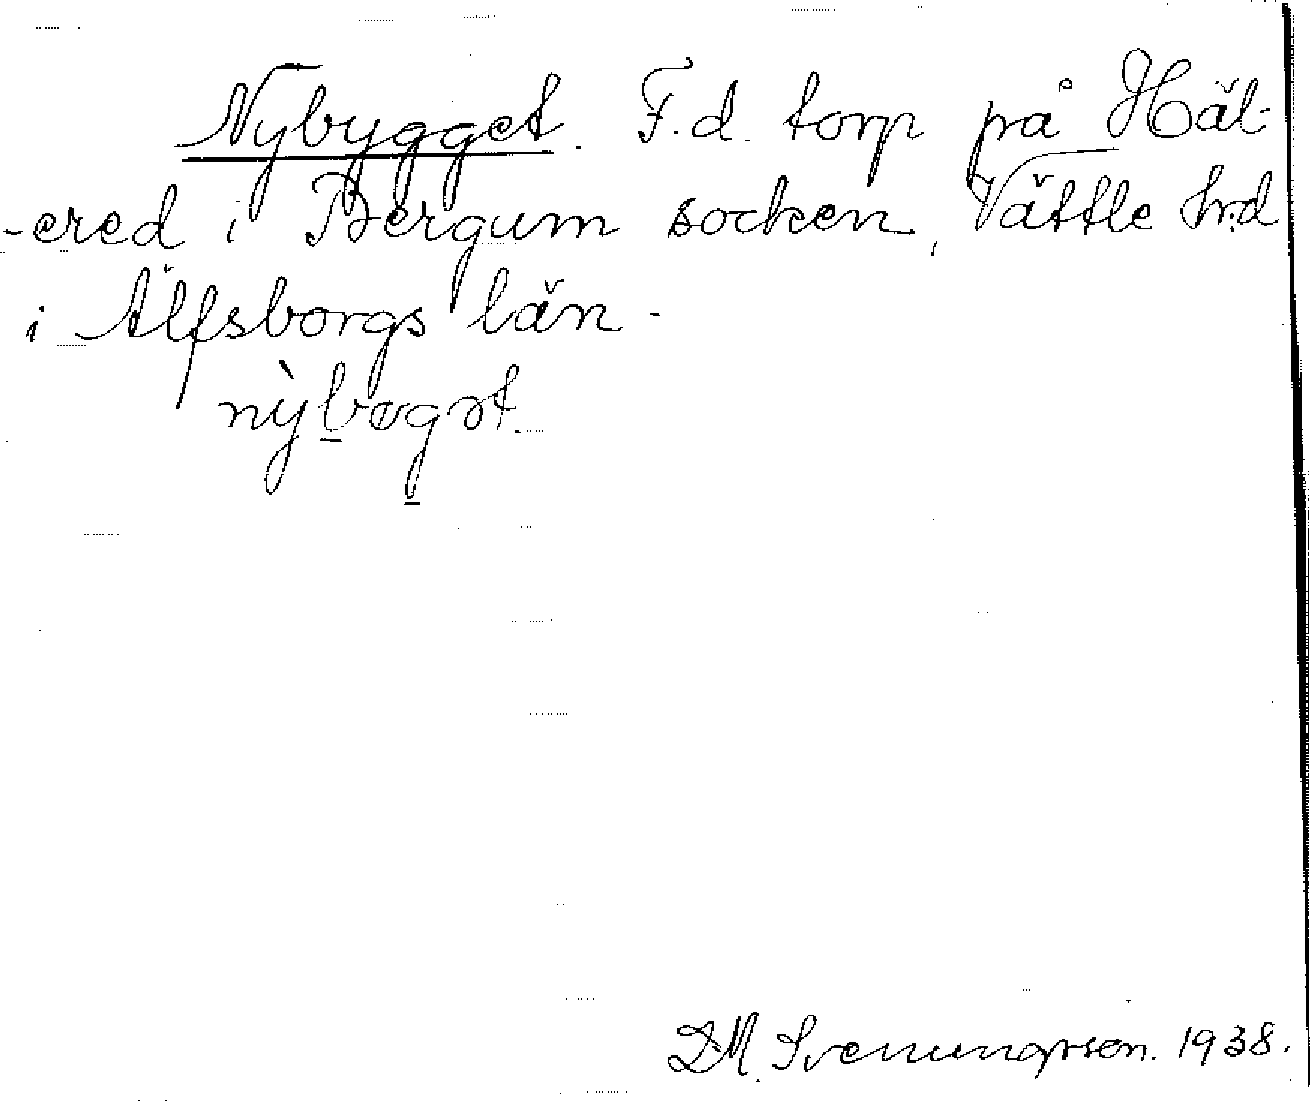 Nybygget. F.d. torp på Häl-
-ered i Bergum socken, Vättle hrd
i Älfsborgs län -
nỳbøgət.
D.M. Svenungsson. 1938.